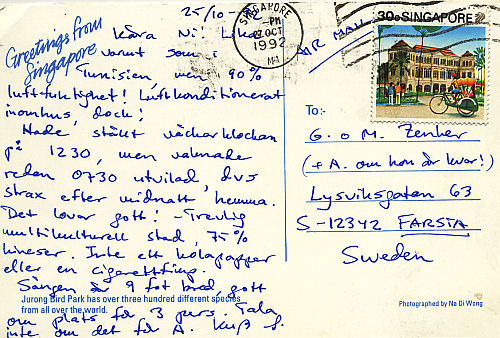 Greetings from
Singapore
25/10-92
Kära Ni! Lika
varmt som i
Tunisien, men 90%
luftfuktighet! Luftkonditionerat
inomhus, dock!
Hade ställt väckarklockan
på 1230, men vaknade
redan 0730 utvilad, dvs
strax efter midnatt hemma.
Det lovar gott! - Trevlig
multikulturell stad, 75%
kineser. Inte ett kolapapper
eller en cigarettfimp.
Sängen är 9 fot bred, gott
om plats för 3 pers. Tala
inte om det för A. Kuß
Jurong Bird Park has over three hundred different species
from all over the world.
SINGAPORE
PM
27 OCT
1992
AIR MAIL
30c SINGAPORE
To:-
G. o M. Zenker
(+ A. om hon är kvar!)
Lysviksgatan 63
S-12342 FARSTA
Sweden
Photographed by Na Di Wong